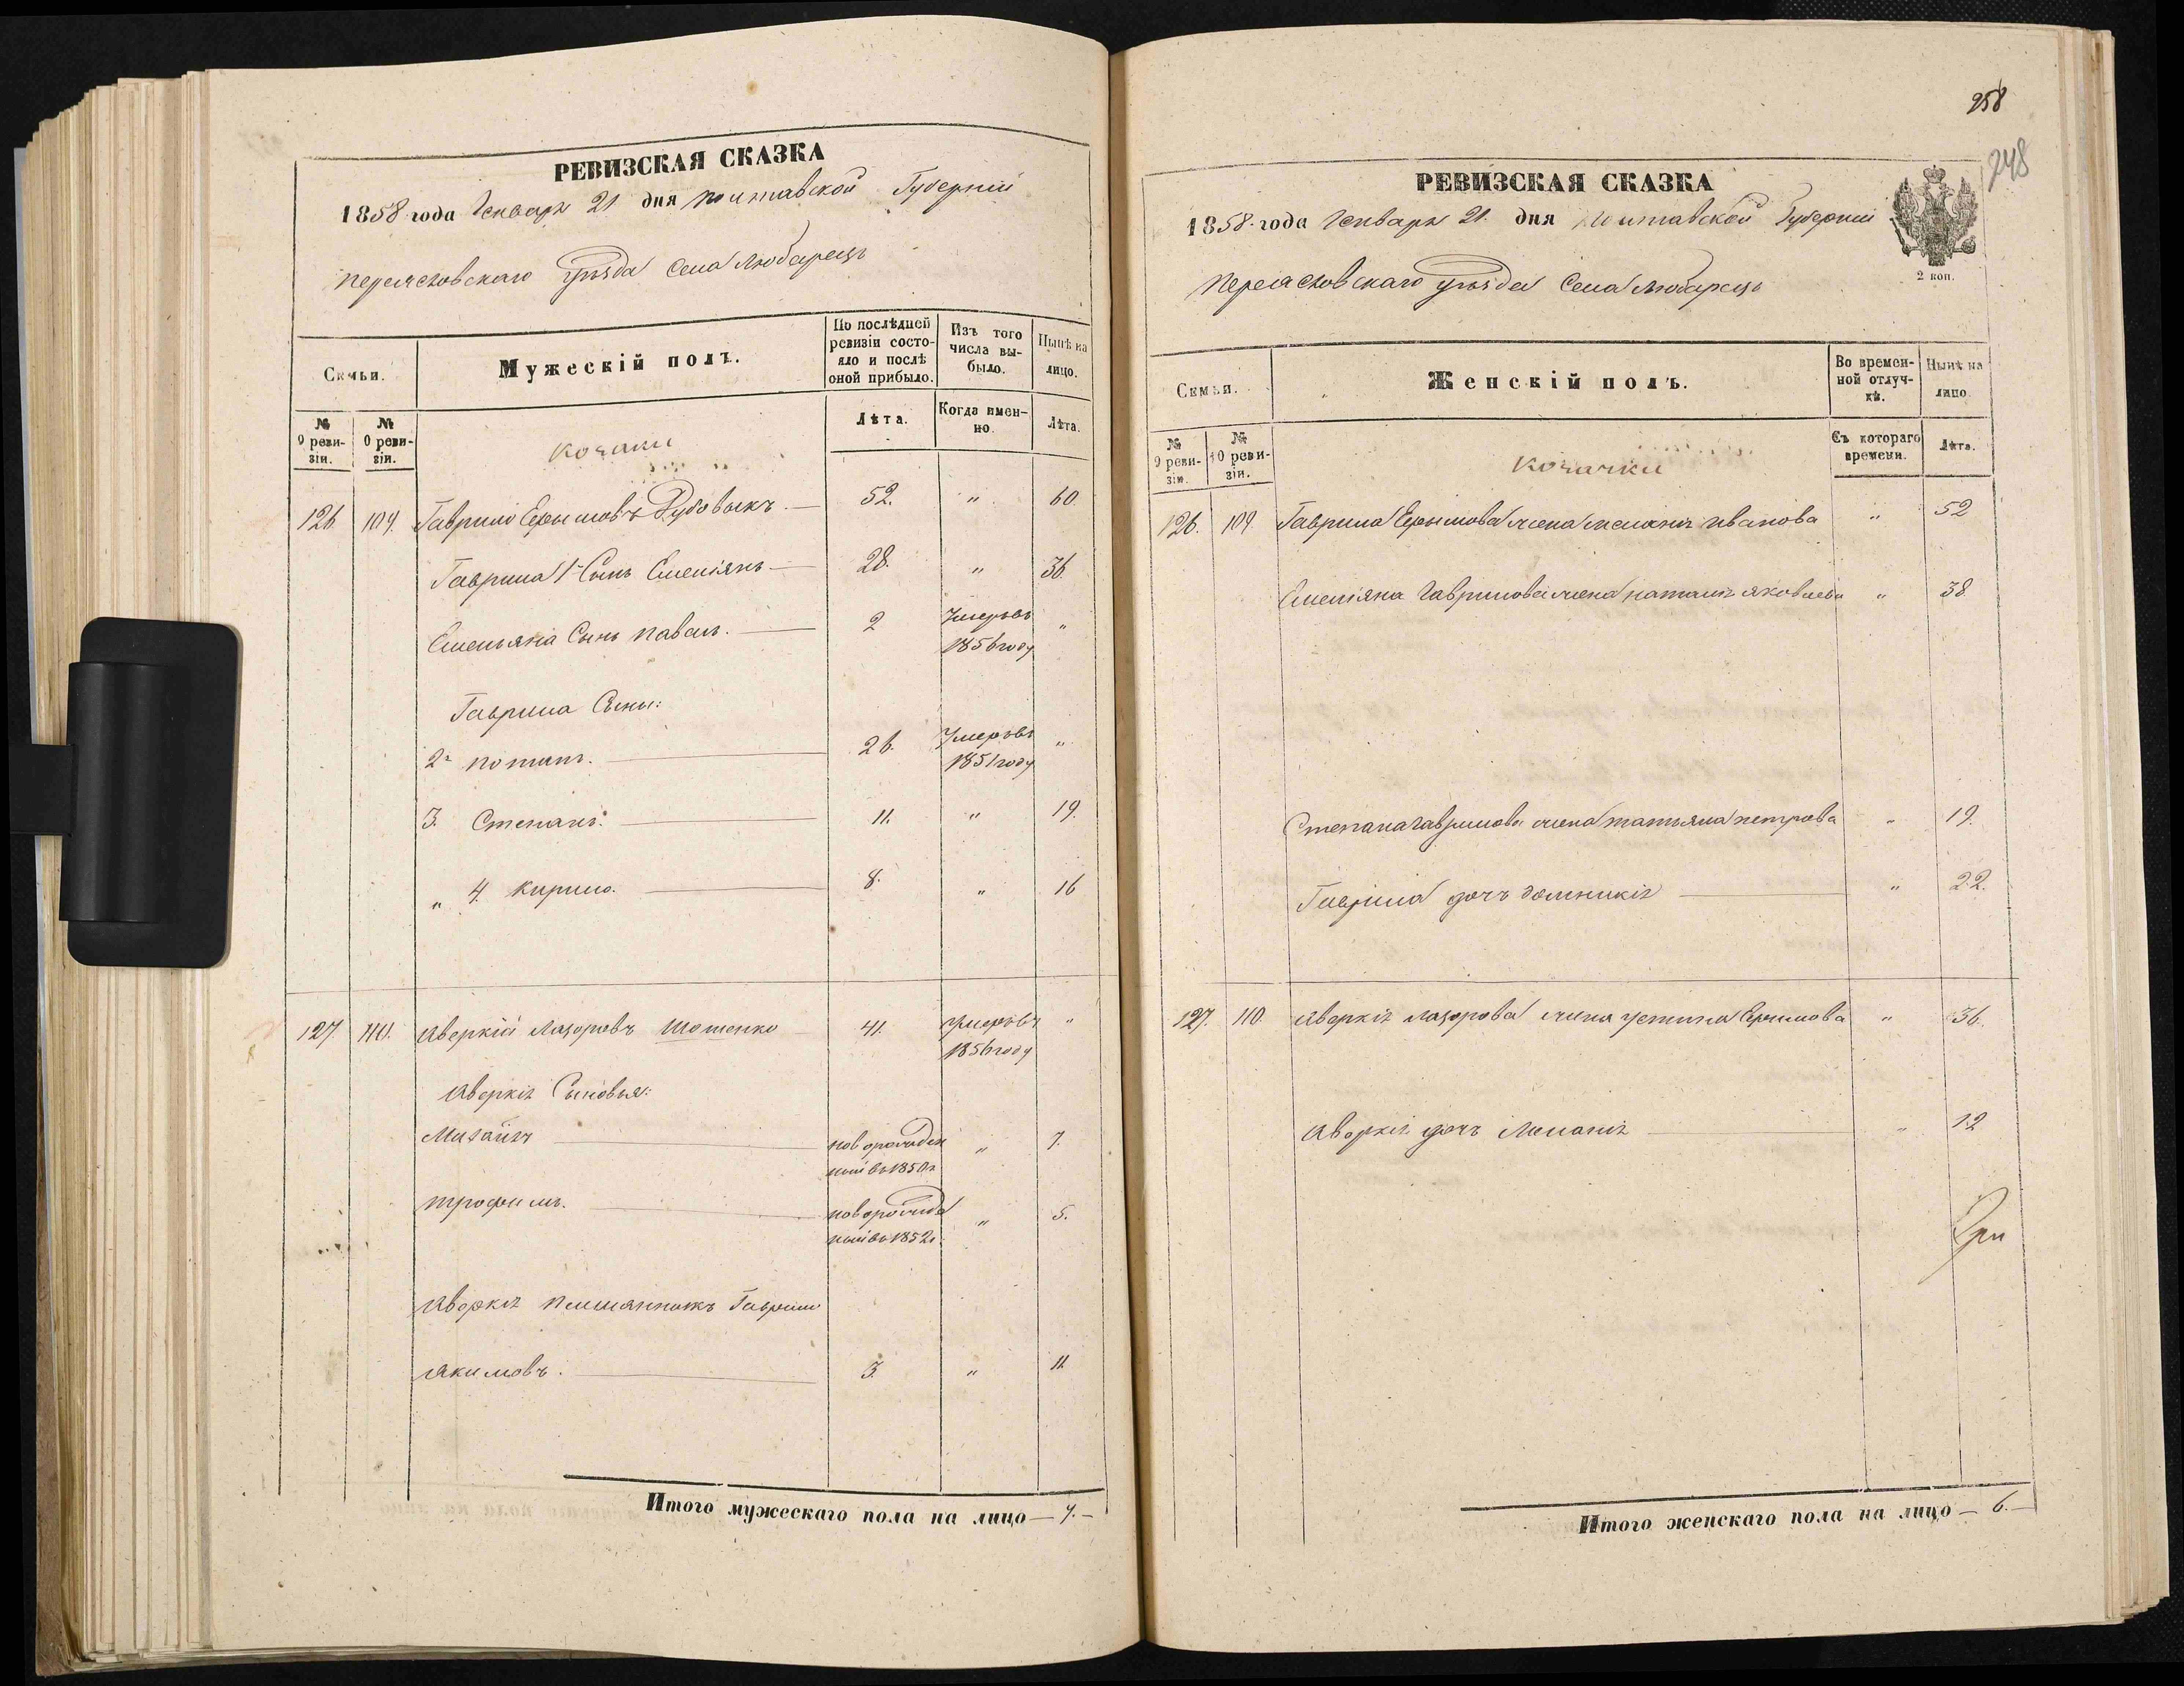 РЕВИЗСКАЯ СКАЗКА
1858 года Генваря 21 дня Полтавской Губерніи
Переясловскаго уѣзда Села Любарецъ
Семьи.
Мужескій полъ.
По послѣдней ревизіи состояло и послѣ оной прибыло.
Изъ того числа выбыло.
Нынѣ на лицо.
№ 9 ревизіи.
№ 0 ревизіи.
Козаки
Лѣта.
Когда именно.
Лѣта.
126. 109. Гаврило Ефимовъ Дубовыкъ. 52. " 60
Гаврила 1й Сынъ Емеліянъ 28. " 36.
Емельяна Сынъ Павелъ. 2 Умеръ въ "
1856 году
Гаврила Сыны:
2й Потапъ. 26. Умеръ въ "
1851 году
3. Степанъ. 11. " 19.
" 4. Кирило. 8. " 16
127. 110. Аверкій Лазоровъ Шотенко 41. Умеръ въ "
1856 году
Аверкія Сыновья:
Михайлъ новорожден " 7.
ный въ 1850 г
Трофимъ. новорожде " 5.
ный въ 1852 г.
Аверкія племянникъ Гаврило
Якимовъ. 3. " 11
Итого мужескаго пола на лицо — 7. —
258
248
РЕВИЗСКАЯ СКАЗКА
2 коп.
1858 года Генваря 21. дня Полтавской Губерніи
Переясловскаго уѣзда Села Любарецъ
Семьи.
Женскій полъ.
Во временной отлучкѣ.
Нынѣ на лицо.
№ 9 ревизіи.
№ 10 ревизіи.
Козачки
Съ котораго времени.
Лѣта.
126. 109. Гаврила Ефимова жена Меланія Иванова " 52
Емеліяна Гаврилова жена Наталія Яковлева " 38
Степана Гаврилова жена Татьяна Петрова " 19.
Гаврила дочь Домникія " 22.
127. 110. Аверкія Лазорова жена Устина Ефимова " 36.
Аверкія дочь Меланія " 12
Итого женскаго пола на лицо — 6. —